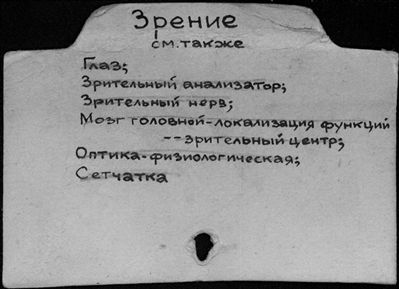 Зрение
см. также
Глаз;
Зрительный анализатор;
Зрительный нерв;
Мозг головной-локализация функций
--зрительный центр;
Оптика-физиологическая;
Сетчатка